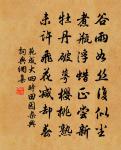 谷雨如絲復似塵
煮瓶浮蠟正嘗新
牡丹破萼櫻桃熟
未許飛花減却春
范成大四時田園雜興
詞典網集